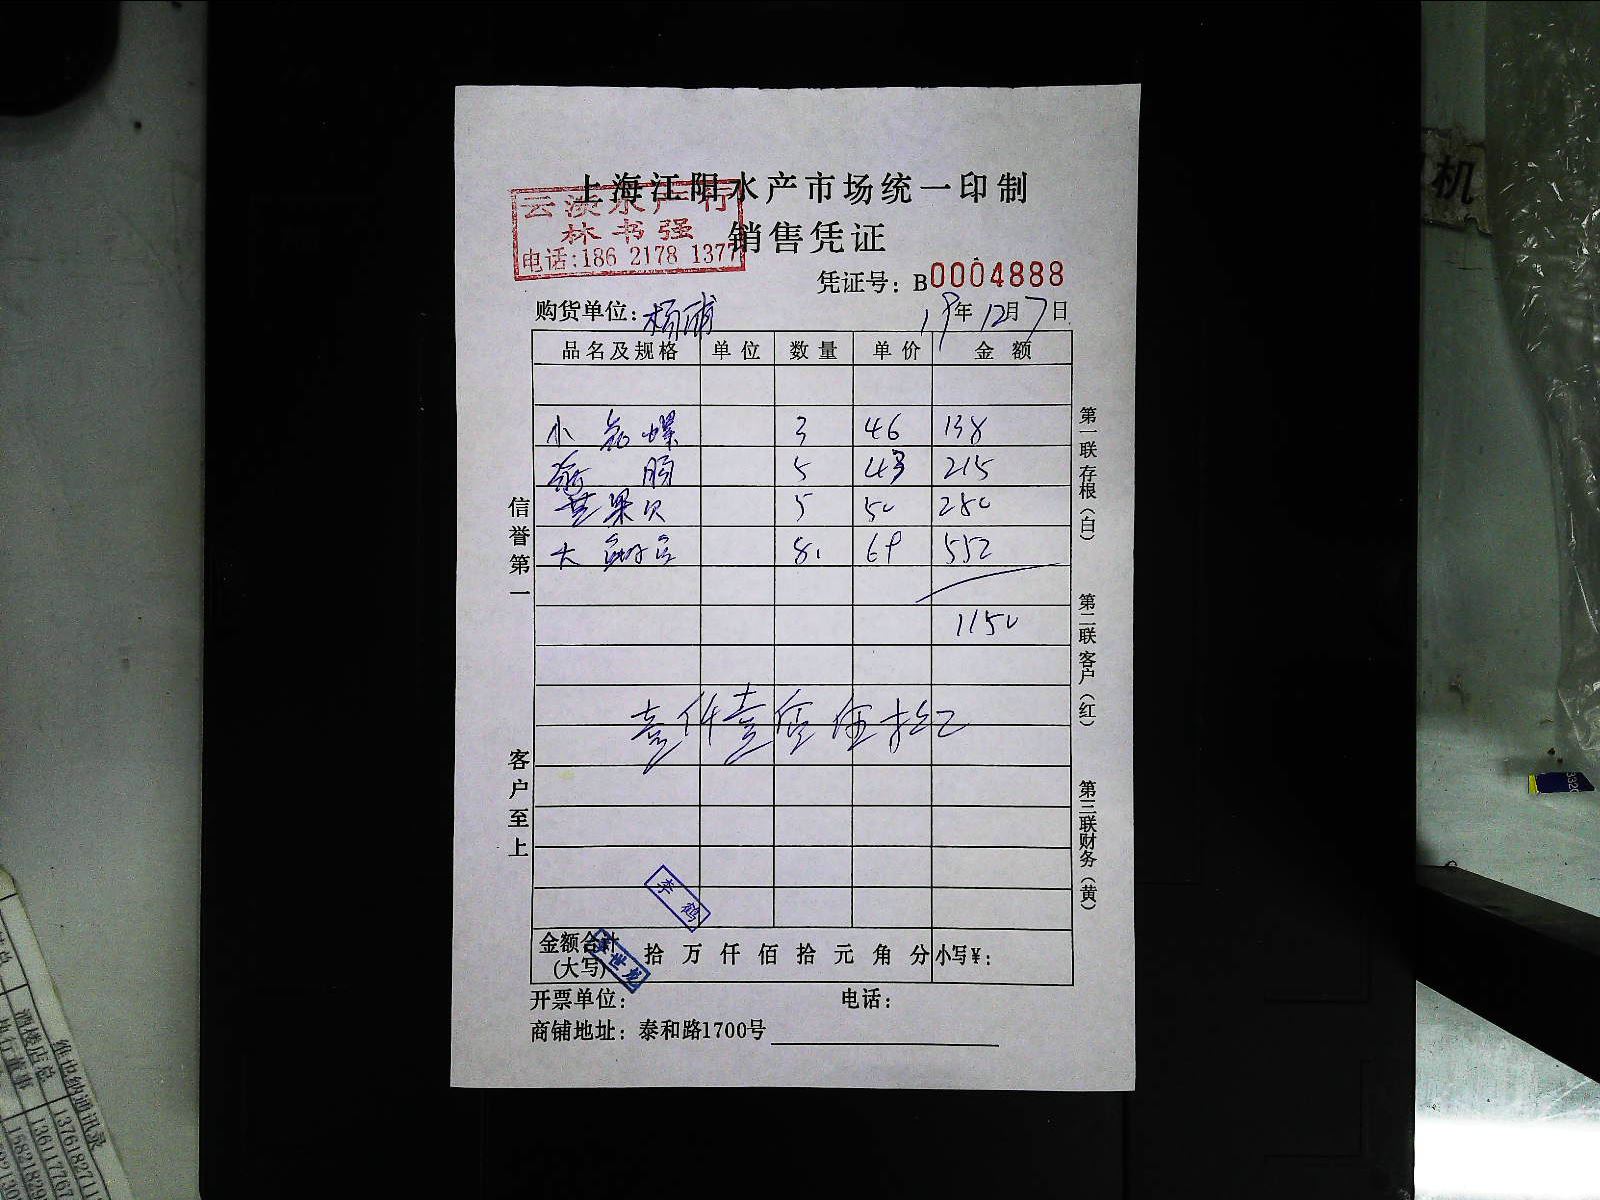 上海江阳水产市场统一印制
云渔水产行
林书强
电话:186 2178 1377
销售凭证
凭证号：B0004888
购货单位：杨浦
19年12月7日
品名及规格 单位 数量 单价 金额
小 螺 3 46 138
肠 5 43 215
苹果贝 5 50 250
大 8 69 552
1150
壹仟壹佰伍拾
信誉第一
客户至上
第一联存根（白）
第二联客户（红）
第三联财务（黄）
李鹤
世龙
金额合计(大写) 拾万仟佰拾元角分 小写¥：
开票单位： 电话：
商铺地址：泰和路1700号
机
维也纳通讯录
酒楼店总
执行董事